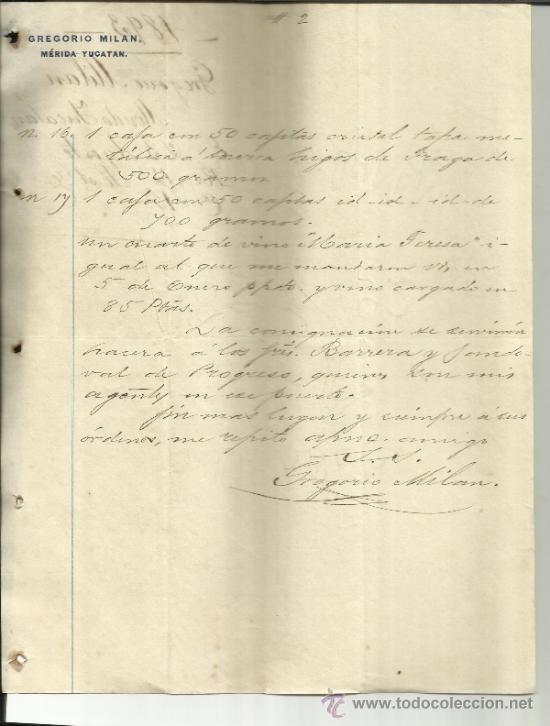 # 2
GREGORIO MILAN.
MÉRIDA YUCATAN.
n. 16. 1 caja con 50 cajitas cristal tapa me-
tálica á rosca higos de Fraga de
500 gramos
n 17 1 caja con 50 cajitas id - id - id - de
700 gramos.
Un cuarto de vino "Maria Teresa" i-
gual al que me mandaron Vs. en
5 de Enero ppdo. y vino cargado en
85 Ptas.
La consignación se servirán
hacerla á los Srs. Barrera y Sando-
val de Progreso, quienes son mis
agentes en ese puerto.
Sin mas lugar y siempre á sus
órdenes, me repito afmo. amigo
S. S.
Gregorio Milan.
1893
Gregorio Milan
Merida Yucatan
www.todocoleccion.net